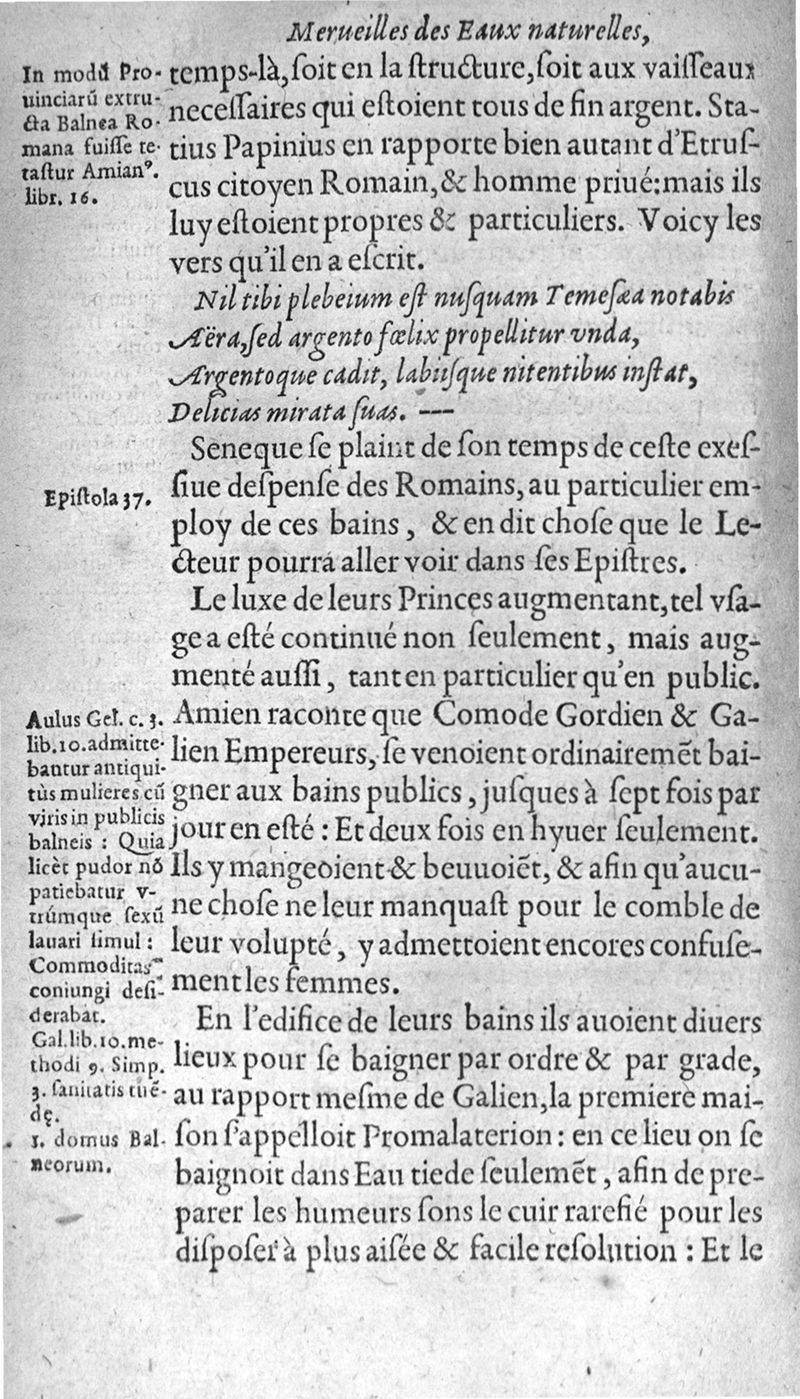 Merueilles des Eaux naturelles,
temps-là, ſoit en la ſtructure, ſoit aux vaiſſeaux
neceſſaires qui eſtoient tous de fin argent. Sta-
tius Papinius en rapporte bien autant d'Etruſ-
cus citoyen Romain, & homme priué: mais ils
luy eſtoient propres & particuliers. Voicy les
vers qu'il en a eſcrit.
Nil tibi plebeium eſt nuſquam Temeſæa notabis
Aëra, ſed argento fœlix propellitur vnda,
Argentoque cadit, labiiſque nitentibus inſtat,
Delicias mirata ſuas. —
Seneque ſe plaint de ſon temps de ceſte exeſ-
ſiue deſpenſe des Romains, au particulier em-
ploy de ces bains, & en dit choſe que le Le-
cteur pourra aller voir dans ſes Epiſtres.
Le luxe de leurs Princes augmentant, tel vſa-
ge a eſté continué non ſeulement, mais aug-
menté auſſi, tant en particulier qu'en public.
Amien raconte que Comode Gordien & Ga-
lien Empereurs, ſe venoient ordinairemẽt bai-
gner aux bains publics, juſques à ſept fois par
jour en eſté: Et deux fois en hyuer ſeulement.
Ils y mangeoient & beuuoiẽt, & afin qu'aucu-
ne choſe ne leur manquaſt pour le comble de
leur volupté, y admettoient encores confuſe-
ment les femmes.
En l'edifice de leurs bains ils auoient diuers
lieux pour ſe baigner par ordre & par grade,
au rapport meſme de Galien, la premiere mai-
ſon ſ'appelloit Promalaterion: en ce lieu on ſe
baignoit dans Eau tiede ſeulemẽt, afin de pre-
parer les humeurs ſons le cuir rarefié pour les
diſpoſer à plus aiſée & facile reſolution: Et le
In modũ Pro-
uinciarũ extru-
cta Balnea Ro-
mana fuiſſe te-
taſtur Amianꝰ.
libr. 16.
Epiſtola 37.
Aulus Gel. c. 3.
lib. 10. admitte-
bantur antiqui-
tùs mulieres cũ
viris in publicis
balneis: Quia
licèt pudor nõ
patiebatur v-
triúmque ſexũ
lauari ſimul:
Commoditas
coniungi deſi-
derabat.
Gal. lib. 10. me-
thodi 9. Simp.
3. ſanitatis tuẽ-
dę.
1. domus Bal-
neorum.